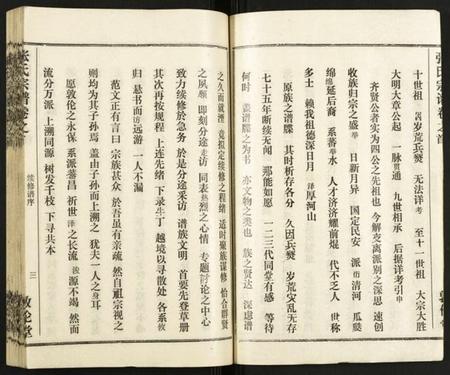 张氏宗谱 卷之首
十世祖 因岁荒兵燹 无法详考 至十一世祖 大宗大胜
大明大章公起 一脉贯通 九世相承 后据详考引申
齐贤公者实为四公之先祖也 今解交离派别之深思 速创
收族归宗之盛举 日新月异 国定民安 派衍清河 瓜瓞
绵绵延后裔 系番苹水 人才济济耀前焜 代不乏人 世称
多士 赖我祖德深日月 泽厚河山
原族之谱牒 其时析存各分 久因兵燹 岁荒灾乱无存
七十五年断续无闻 那能如愿 一二三代同堂有感 等待
何时 盖谱牒之为书 亦文物之类也 族之贤达 深虑谱
之久而就湮 竟拟定续修之程绪 适时聚族谋修 恰合群贤
之夙愿 即刻分途走访 同表热烈之心情 专题讨论之中心
致力续修于急务 于是分途采访 谱族文明 首要先登草册
其次再按规程 上连先绪 下录生丁 越境以寻散处 各系攸
归 悬书而访远游 一人不漏
范文正有言曰 宗族甚众 於吾虽有亲疏 然自祖宗视之
则均为其子孙焉 盖由子孙而上溯之 犹夫一人之身耳
愿敦伦之永保 系派蕃昌 祈世泽之长流 源不竭 然而
流分万派 上溯同源 树发千枝 下寻共本
张氏宗谱
续修谱序
三
敦伦堂